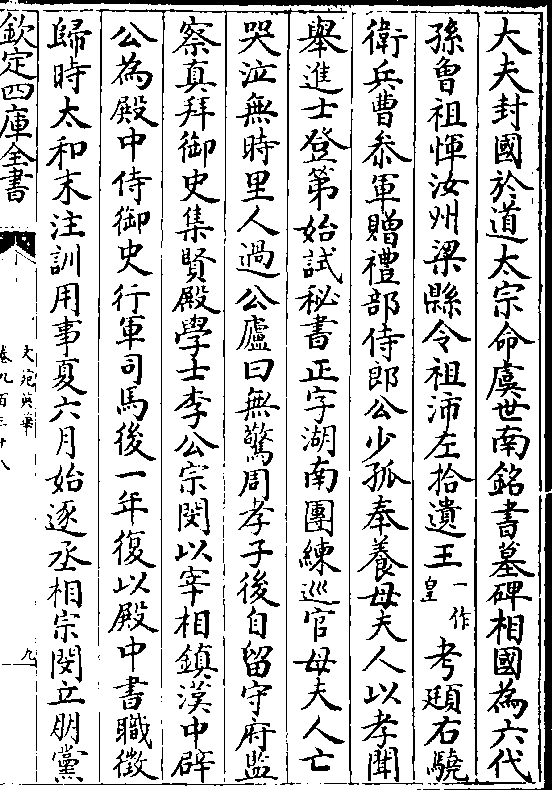 大夫封國於道太宗命虞世南銘書墓碑相國為六代
孫魯祖惲汝州梁縣令祖沛左拾遺王一作皇考頲右驍
衛兵曹叅軍贈禮部侍郎公少孤奉養母夫人以孝聞
舉進士登第始試秘書正字湖南團練巡官母夫人亡
哭泣無時里人過公廬曰無驚周孝子後自留守府監
察真拜御史集賢殿學士李公宗閔以宰相鎮漢中辟
公為殿中侍御史行軍司馬後一年復以殿中書職徴
歸時太和末注訓用事夏六月始逐丞相宗閔立朋黨
欽定四庫全書
文苑英華
九